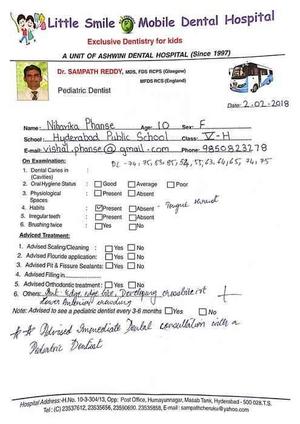 Little Smile Mobile Dental Hospital
Exclusive Dentistry for kids
A UNIT OF ASHWINI DENTAL HOSPITAL (Since 1997)
Dr. SAMPATH REDDY, MDS, FDS RCPS (Glasgow)
MFDS RCS (England)
Pediatric Dentist
Date: 2.02-2018
Name: Niharika Phanse Age: 10 Sex: F
School: Hyderabad Public School Class: V-H
E-mail: vishal.phanse@gmail.com Phone: 9850823278
On Examination:
1. Dental Caries in : (Cavities)
2. Oral Hygiene Status : Good Average Poor
3. Physiological Spaces : Present Absent
4. Habits : Present Absent - Tongue thrust
5. Irregular teeth : Present Absent
6. Brushing twice : Yes No
Adviced Treatment:
1. Advised Scaling/Cleaning : Yes No
2. Advised Flouride application: Yes No
3. Advised Pit & Fissure Sealants: Yes No
4. Advised Filling in
5. Advised Orthodontic treatment : Yes No
6. Others: edge edge bite, Developing crossbite
lower Anterior crowding
Note: Advised to see a pediatric dentist every 3-6 months Yes No
** Advised Immediate Dental consultation with a
Pediatric Dentist
Hospital Address:-H.No. 10-3-304/13, Opp. Post Office, Humayunnagar, Masab Tank, Hyderabad - 500 028.T.S.
Tel.: (C) 23537612, 23535656, 23590690. 23535858. E-mail : sampathcheruku@yahoo.com